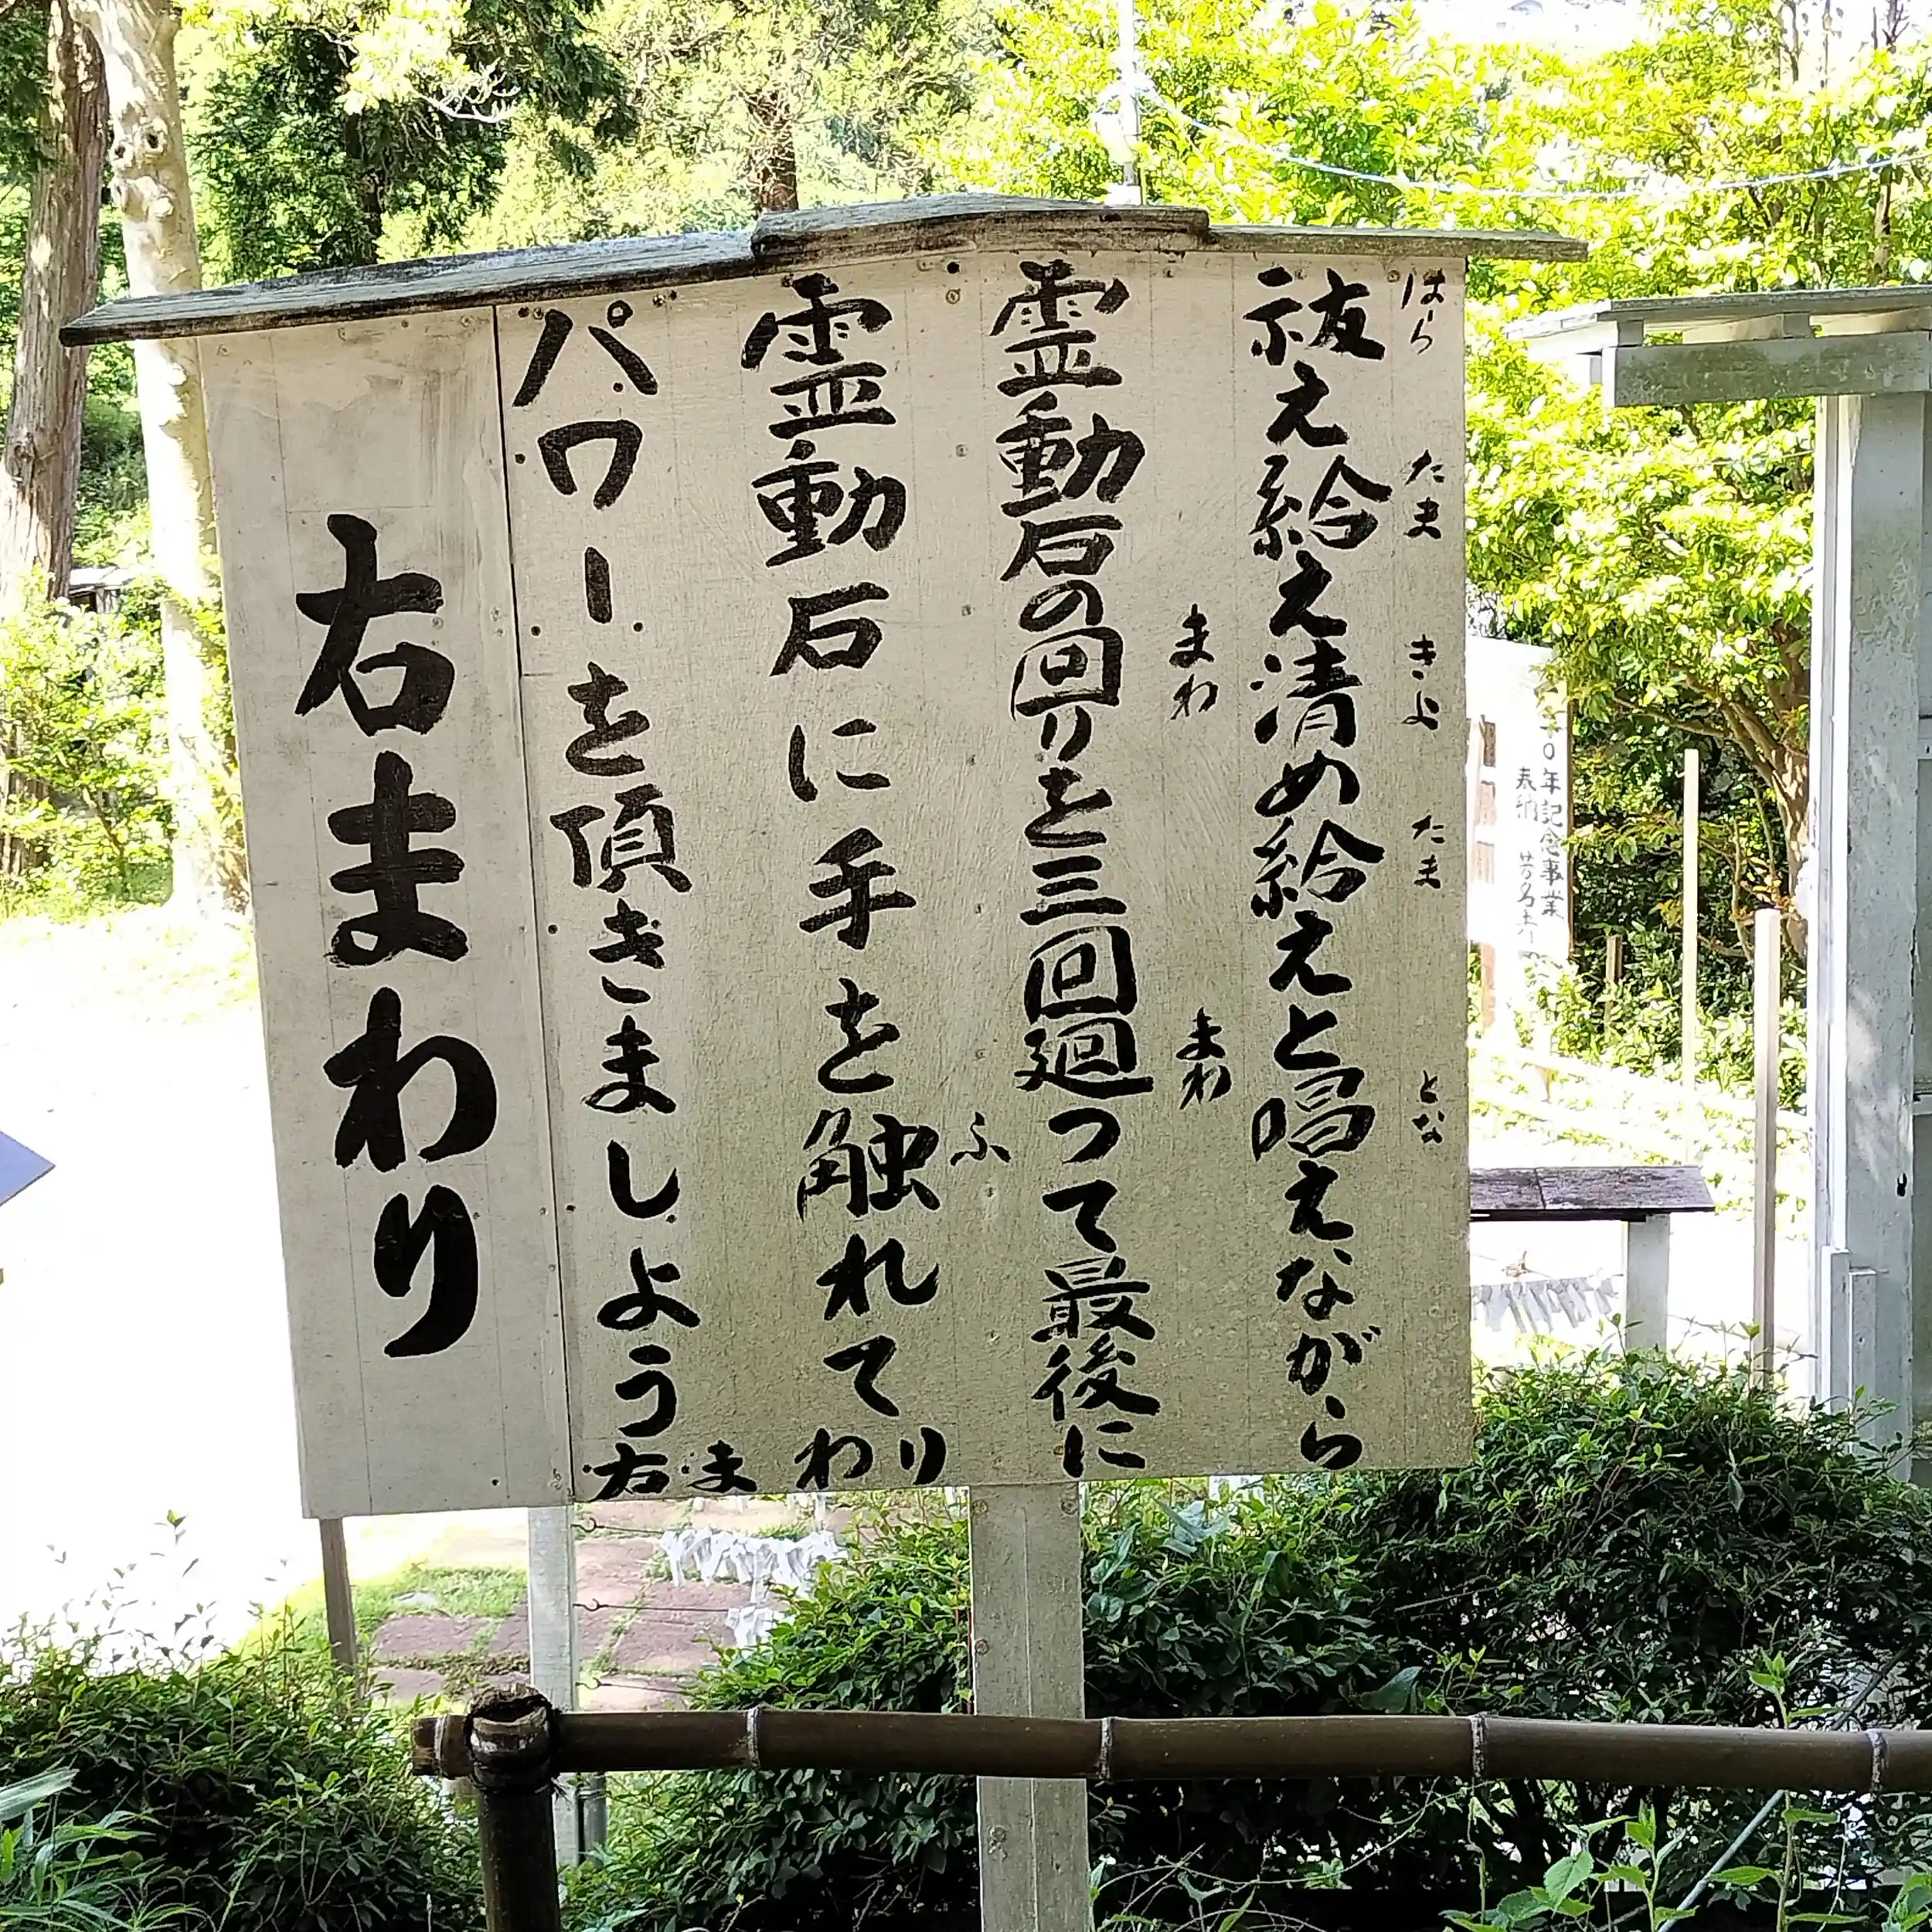 祓え給え清め給えと唱えながら
はら たま きよ たま とな
霊動石の回りを三回廻つて最後に
まわ まわ
霊動石に手を触れて
ふ
パワーを頂きましよう
右まわり
右まわり
〇年記念事業
奉納 芳名